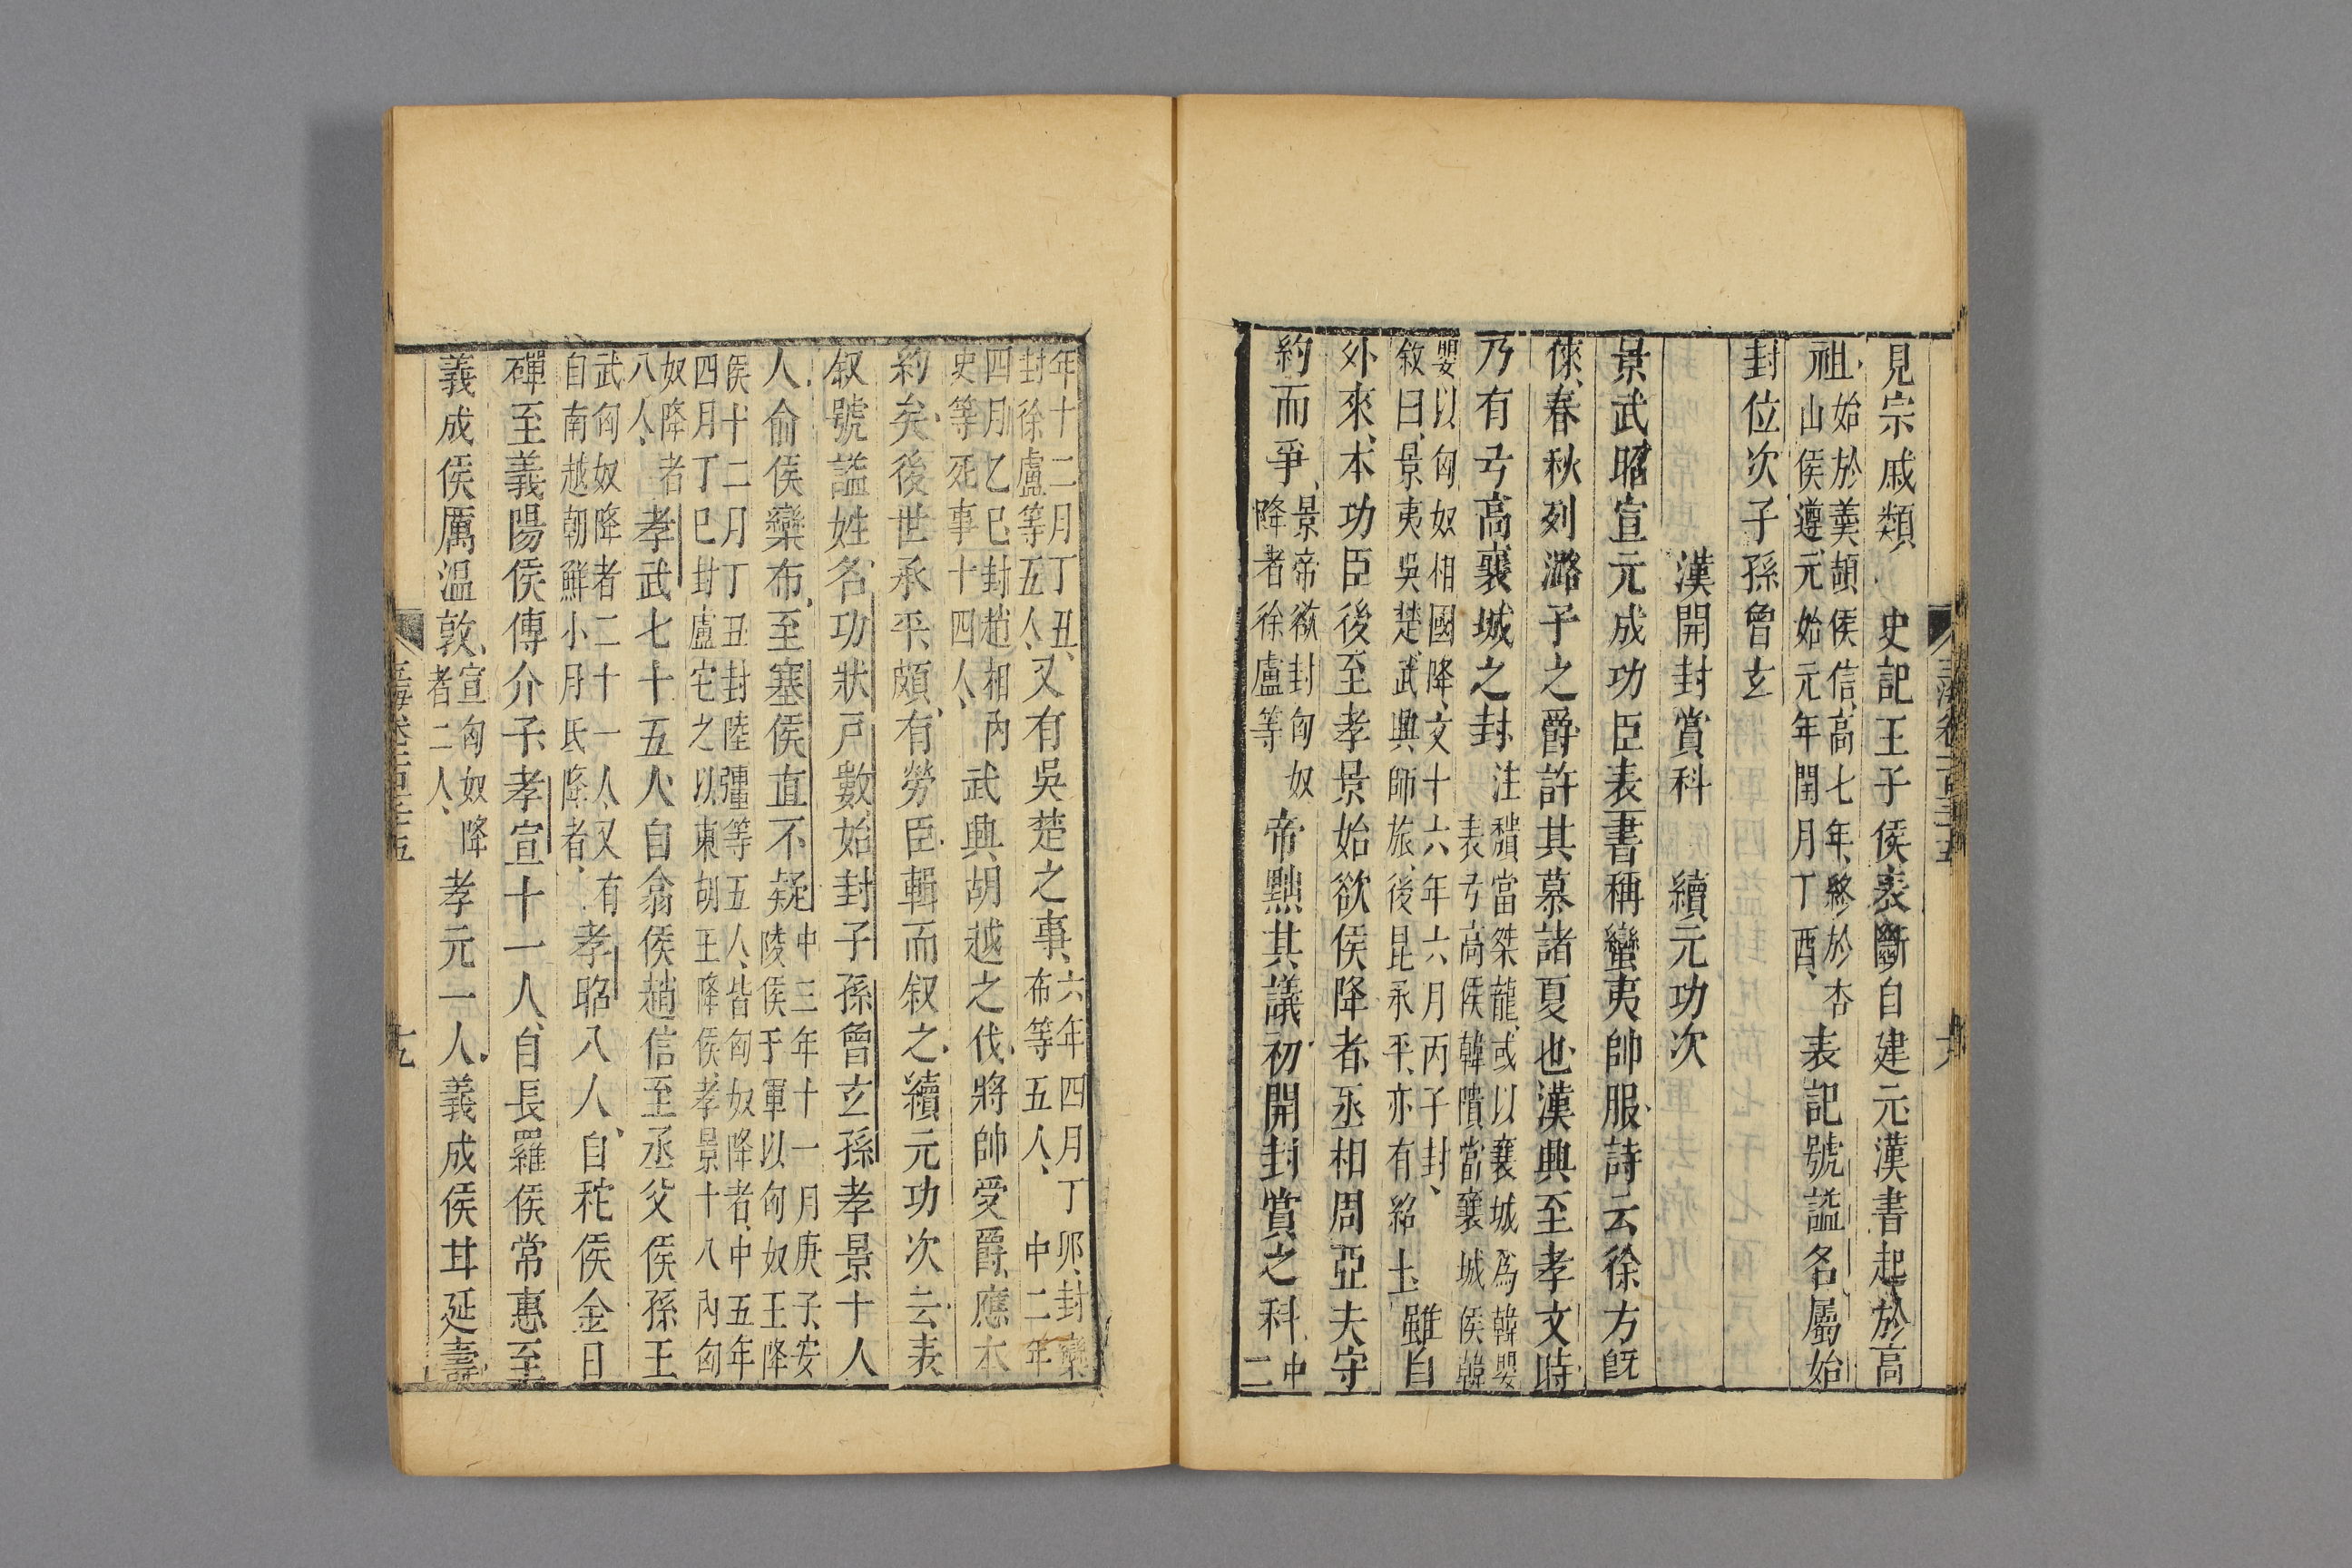 見宗戚類 史記王子侯表斷自建元漢書起於高
祖始於羹頡侯信高七年終於杏山侯遵元始元年閏月丁酉表記號諡名屬始
封位次子孫曾玄
漢開封賞科 續元功次
景武昭宣元成功臣表書稱蠻夷帥服詩云徐方旣
倈春秋列潞子之爵許其慕諸夏也漢興至孝文時
乃有弓高襄城之封注穨當桀龍或以襄城爲韓嬰表弓高侯韓隤當襄城侯韓
嬰以匈奴相國降文十六年六月丙子封敘曰景夷吳楚武興師旅後昆承平亦有紹土雖自
外來本功臣後至孝景始欲侯降者丞相周亞夫守
約而爭景帝欲封匈奴降者徐盧等帝黜其議初開封賞之科中二
年十二月丁丑封徐盧等五人又有吳楚之事六年四月丁卯封欒布等五人中二年
四月乙巳封趙相內史等死事十四人武興胡越之伐將帥受爵應本
約矣後世承平頗有勞臣輯而叙之續元功次云表
叙號諡姓名功狀戶數始封子孫曾玄孫孝景十八
人俞侯欒布至塞侯直不疑中三年十一月庚子安陵侯于軍以匈奴王降
侯十二月丁丑封陸彊等五人皆匈奴降者中五年四月丁巳封盧它之以東胡王降侯孝景十八內匈
奴降者八人孝武七十五人自翕侯趙信至丞父侯孫王
武匈奴降者二十一人又有自南越朝鮮小月氏降者孝昭八人自秺侯金日
磾至義陽侯傅介子孝宣十一人自長羅侯常惠至
義成侯厲溫敦宣匈奴降者二人孝元一人義成侯甘延壽